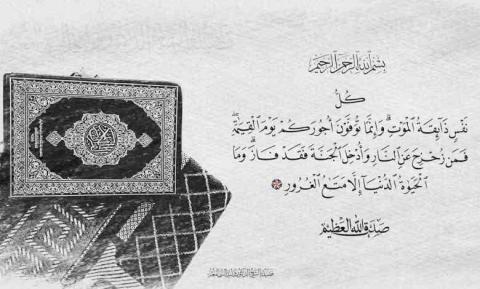 بِسْمِ اللَّهِ الرَّحْمَٰنِ الرَّحِيمِ
كُلُّ
نَفْسٍ ذَائِقَةُ الْمَوْتِ ۗ وَإِنَّمَا تُوَفَّوْنَ أُجُورَكُمْ يَوْمَ الْقِيَٰمَةِ ۖ
فَمَن زُحْزِحَ عَنِ النَّارِ وَأُدْخِلَ الْجَنَّةَ فَقَدْ فَازَ ۗ وَمَا
الْحَيَوٰةُ الدُّنْيَا إِلَّا مَتَٰعُ الْغُرُورِ
صدق الله العظيم